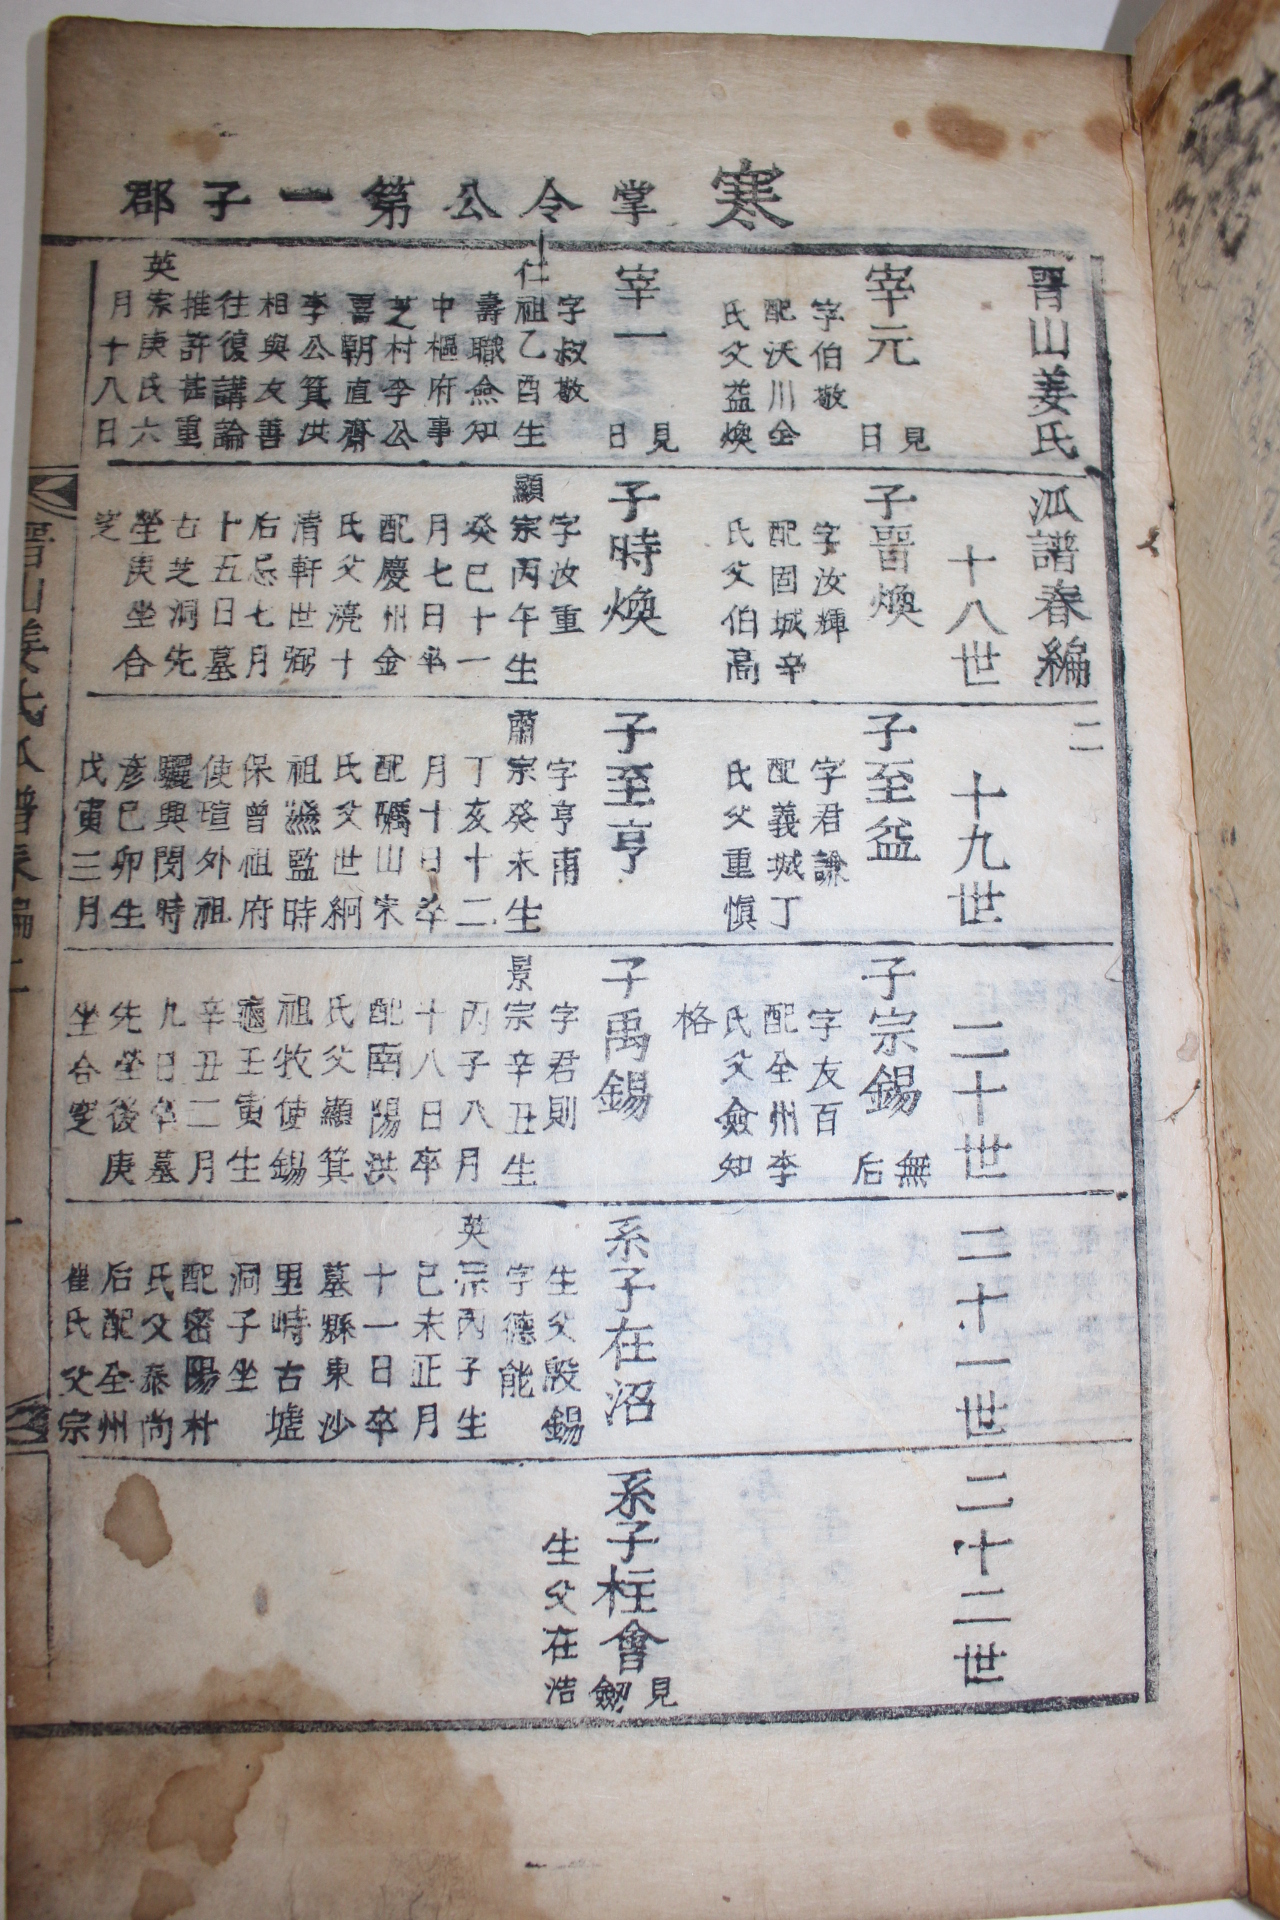 寒 掌令公第一子郡
晋山姜氏
派譜春編 二
宰元
見日
字伯敬
配沃川全
氏父益煥
宰一
見日
字叔敬
仁祖乙酉生
壽職僉知
中樞府事
芝村李公
喜朝直齋
李公箕洪
相與友善
往復講論
推許甚重
英宗庚氏六
月十八日
十八世
子晋煥
字汝輝
配固城辛
氏父伯高
子時煥
字汝重
顯宗丙午生
癸巳十一
月七日卒
配慶州金
氏父澆十
清軒世弼
后忌七月
十五日墓
古芝洞先
塋庚坐合
窆
十九世
子至益
字君謙
配義城丁
氏父重愼
子至亨
字亨甫
肅宗癸未生
丁亥十二
月十日卒
配礪山宋
氏父世絅
祖監時
保曾祖府
使瑄外祖
驪興閔時
彦己卯生
戊寅三月
二十世
子宗錫
無后
字友百
配全州李
氏父僉知
格
子禹錫
字君則
景宗辛丑生
丙子八月
十八日卒
配南陽洪
氏父顯箕
祖牧使錫
龜壬寅生
辛丑二月
九日卒墓
先塋後庚
坐合窆
二十一世
系子在沼
生父殷錫
字德能
英宗丙子生
己未正月
十一日卒
墓縣東沙
里峙古墟
洞子坐
配密陽朴
氏父泰尙
后配全州
崔氏父宗
二十二世
系子柱會
見劒
生父在浩
晋山姜氏派譜春編 二
一